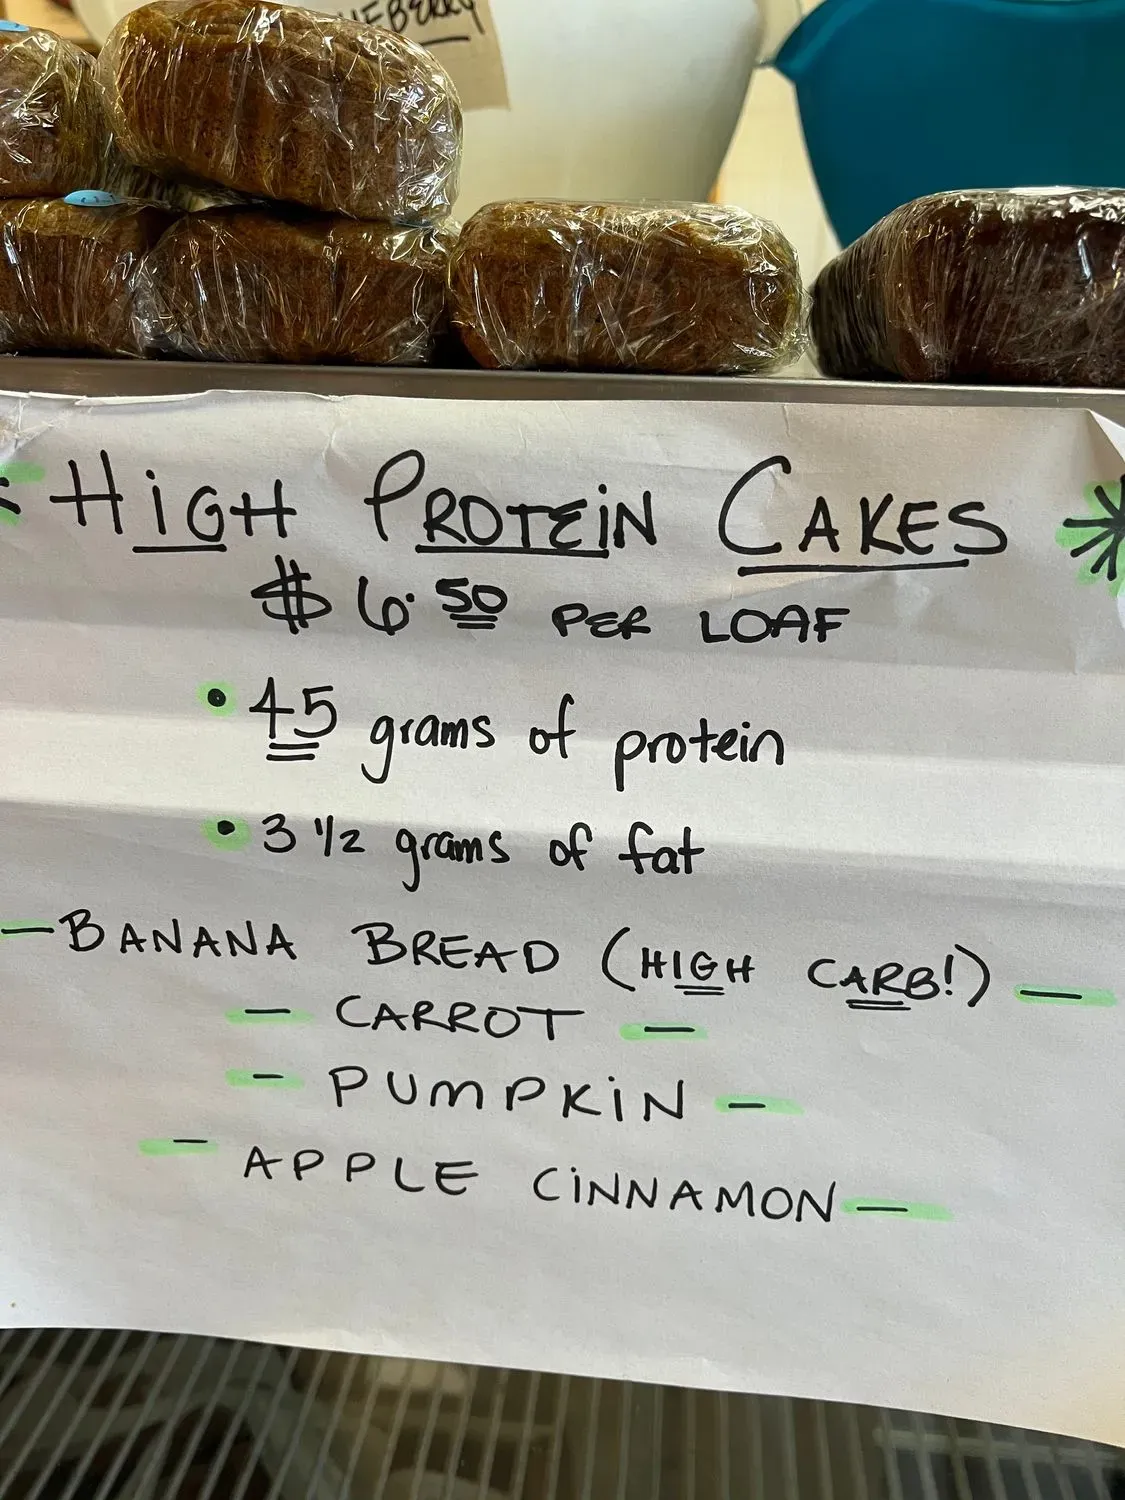 HIGH PROTEIN CAKES
$6.50 PER LOAF
• 45 grams of protein
• 3 1/2 grams of fat
— BANANA BREAD (HIGH CARB!) —
— CARROT —
— PUMPKIN —
— APPLE CINNAMON —